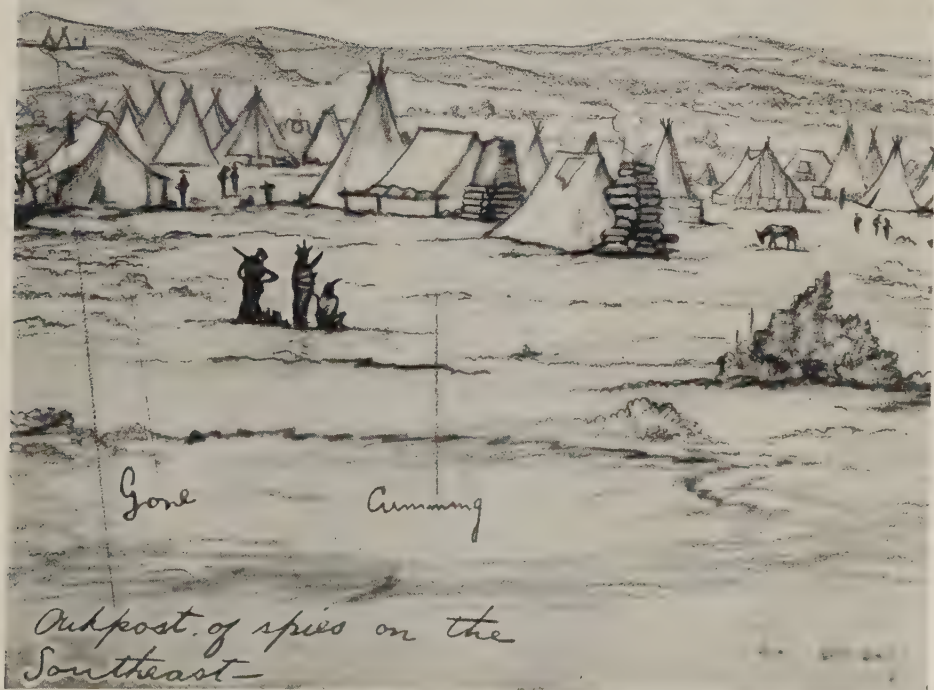 Gove
Cumming
Outpost. of spies on the
Southeast—